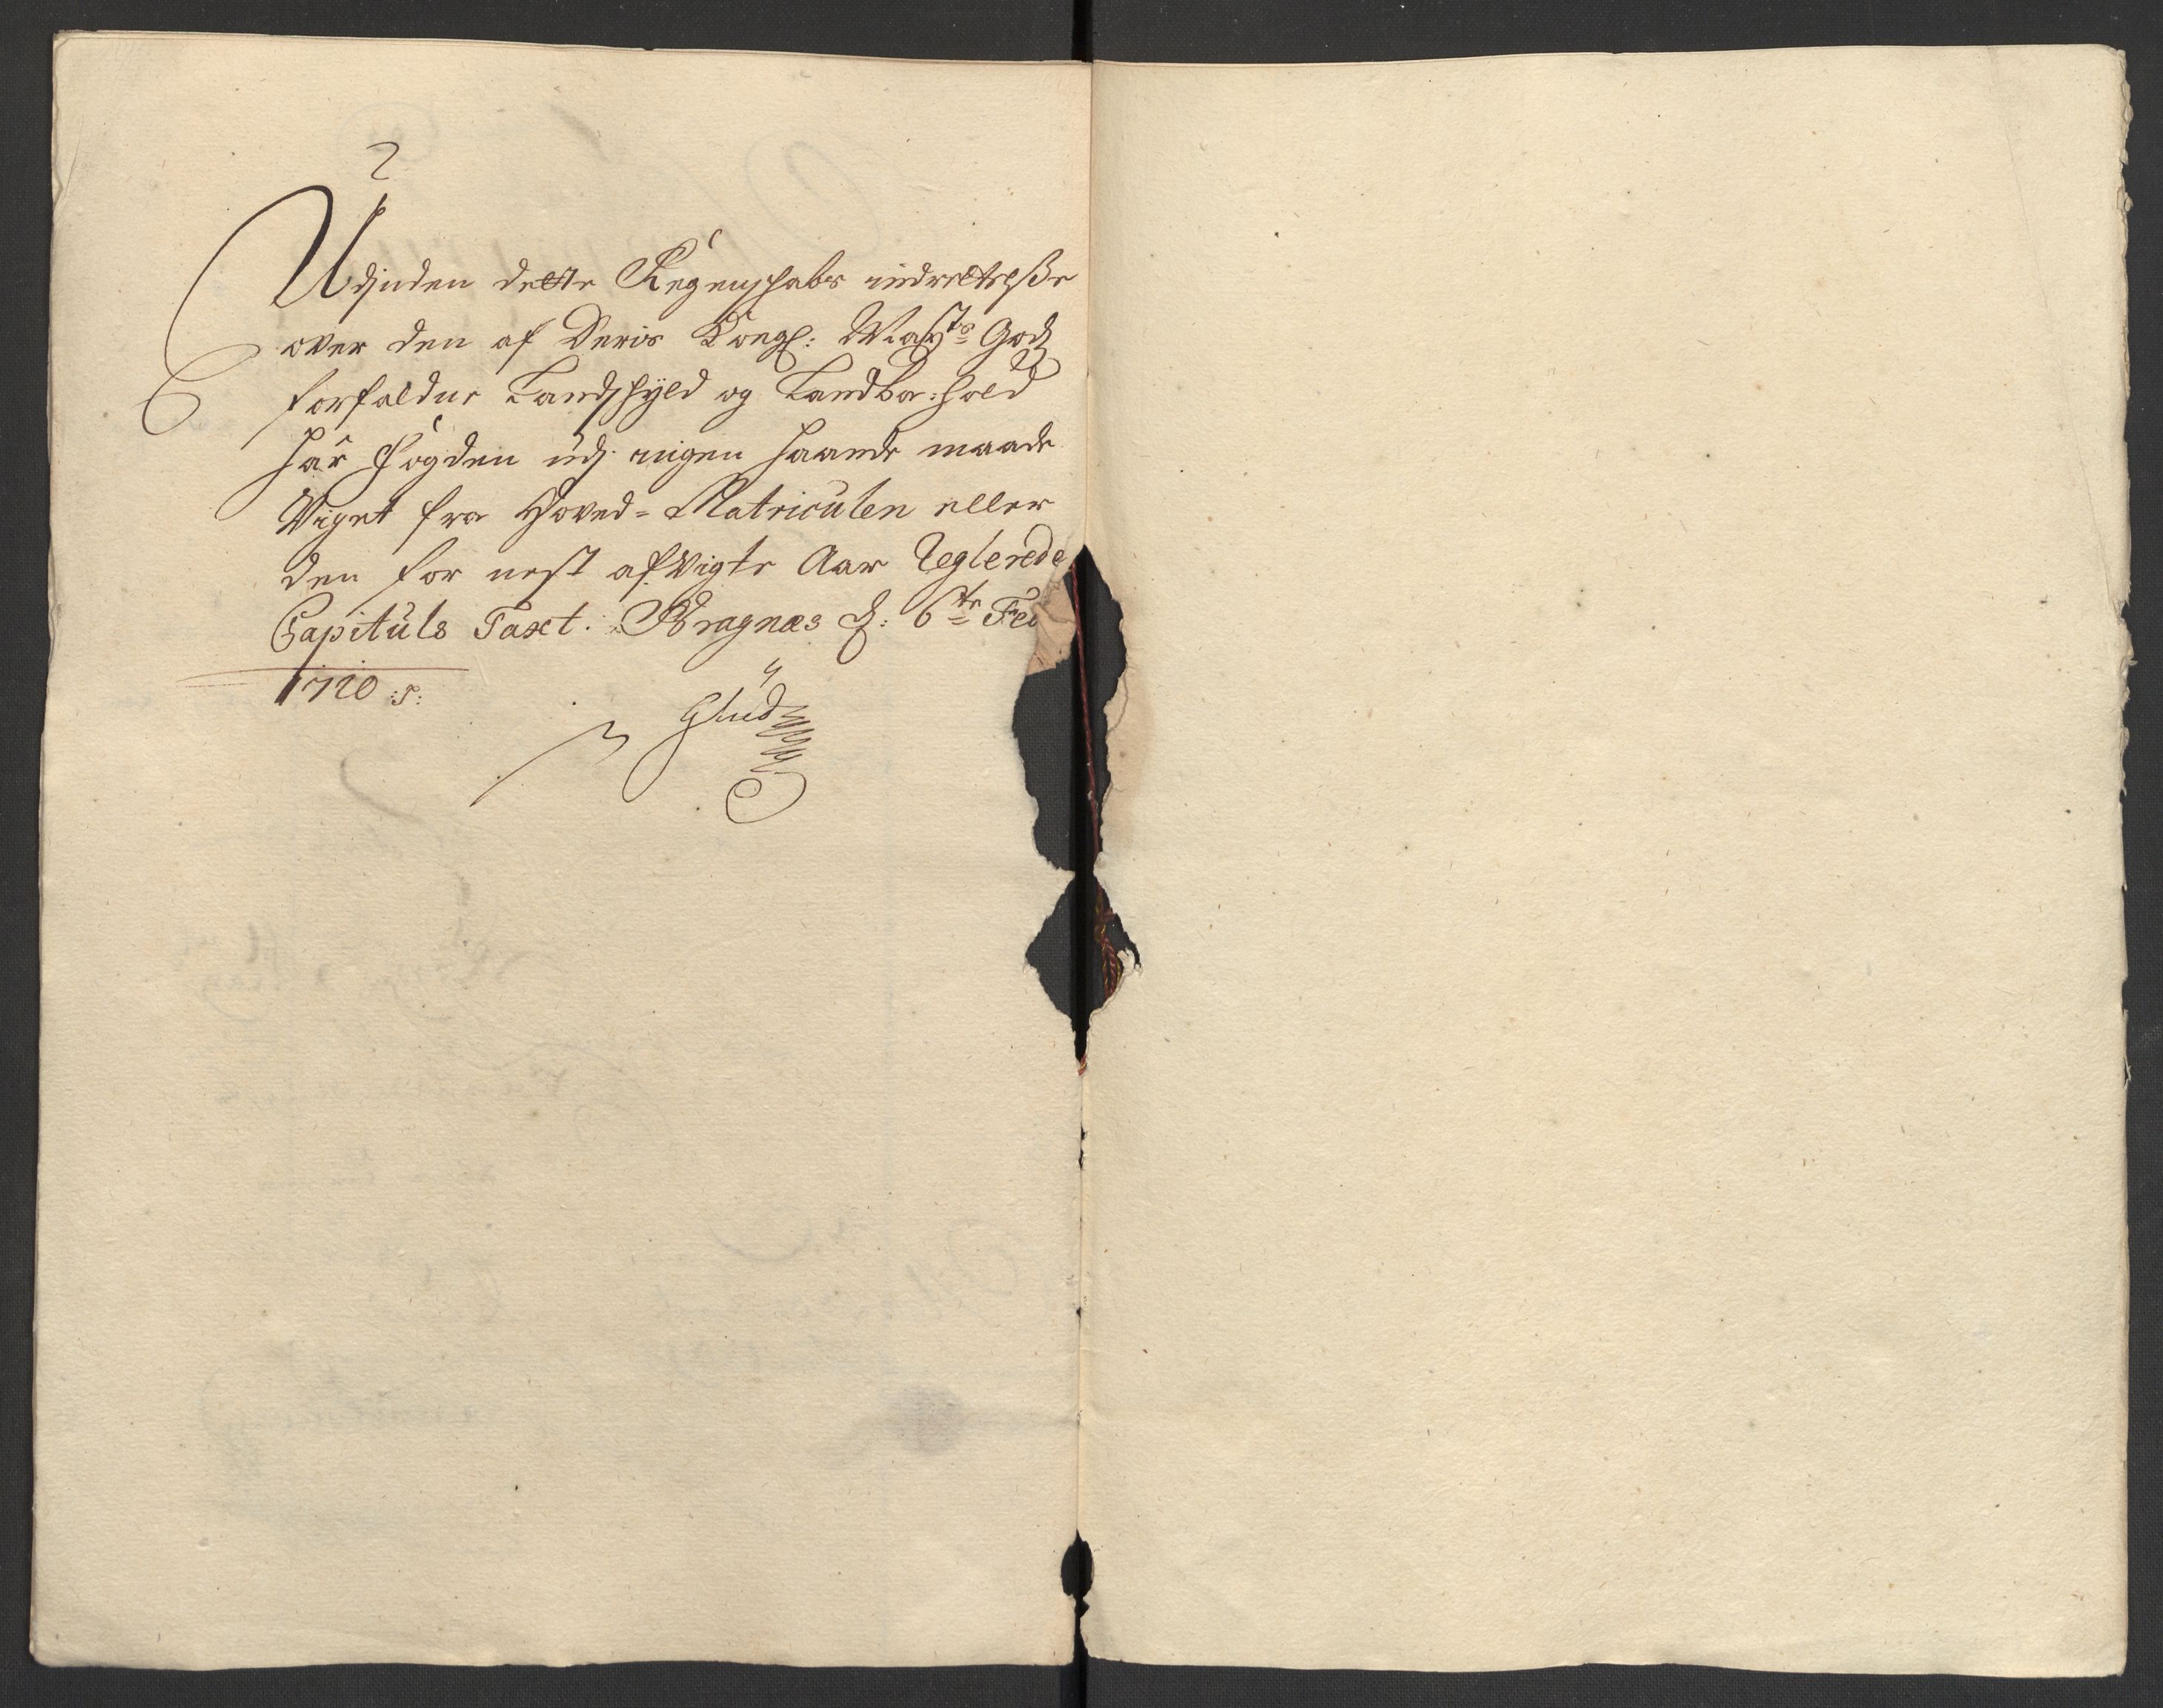 Udjnden dette Regenschabs indrettelsse
over den af Deris Kongl: Mayts Godz
forfaldne Landschyld og Landboehold
har Fogden udj ingen haande maade
Viget fra Hoved-Matriculen eller
den for nest afvigte Aar Reglerede
Capituls Taxt. Bragnæs d: 6te Feb
1710:s:
Glud